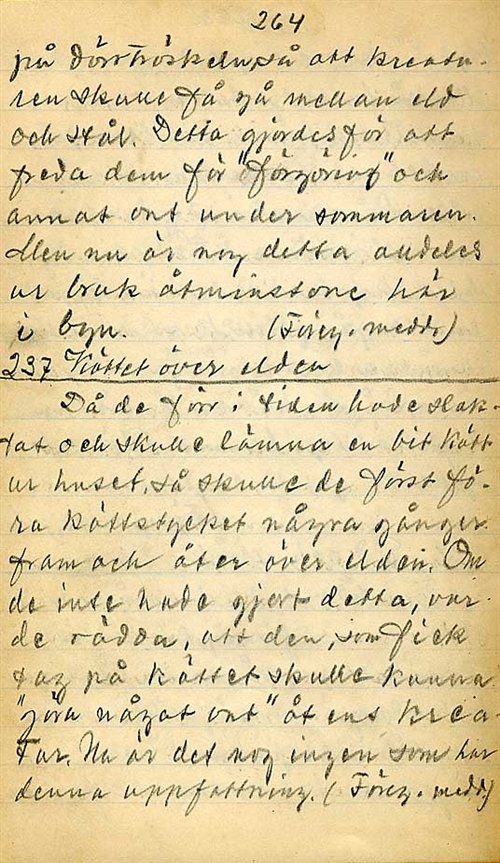 264
på dörrtröskeln, så att kreatu-
ren skulle få gå mellan eld
och stål. Detta gjordes för att
freda dem för "förgöring" och
annat ont under sommaren.
Men nu är nog detta andeles
ur bruk åtminstone här
i byn. (Föreg. medd.)
237 Köttet över elden
Då de förr i tiden hade slak-
tat och skulle lämna en bit kött
ur huset, så skulle de först fö-
ra köttstycket några gånger
fram och åter över elden. Om
de inte hade gjort detta, var
de rädda, att den, som fick
tag på köttet skulle kunna
"göra något ont" åt ens krea-
tur. Nu är det nog ingen som har
denna uppfattning. (Föreg. medd.)